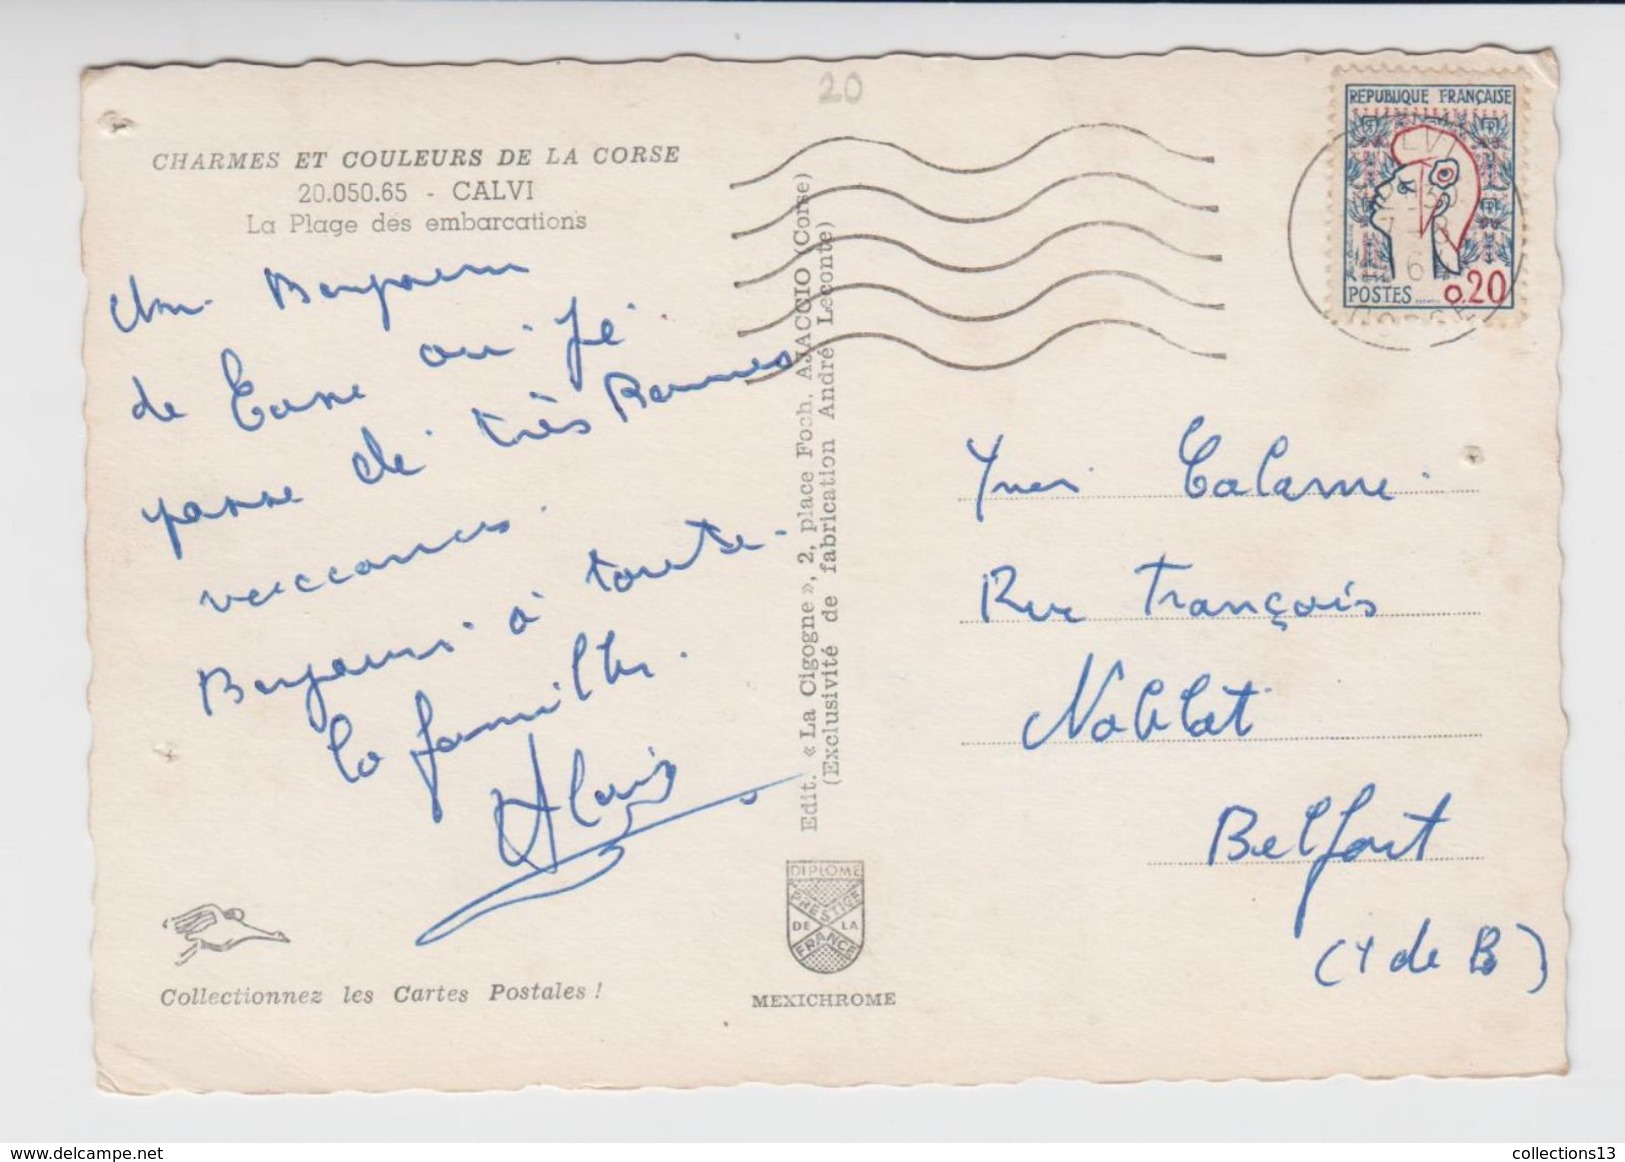 20
CHARMES ET COULEURS DE LA CORSE
20.050.65 - CALVI
La Plage des embarcations
Un Bonjour
de Corse où je
passe de très Bonnes
vaccances.
Bonjour à toute
la famille.
Alain
Collectionnez les Cartes Postales !
Edit. « La Cigogne », 2, place Foch, AJACCIO (Corse)
(Exclusivité de fabrication André Leconte)
DIPLOME
PRESTIGE
DE LA
FRANCE
MEXICHROME
REPUBLIQUE FRANÇAISE
POSTES 0.20
CORSE
Yves Calame.
Rue François
Noblat
Belfort
(T de B)
delcampe.net
collections13